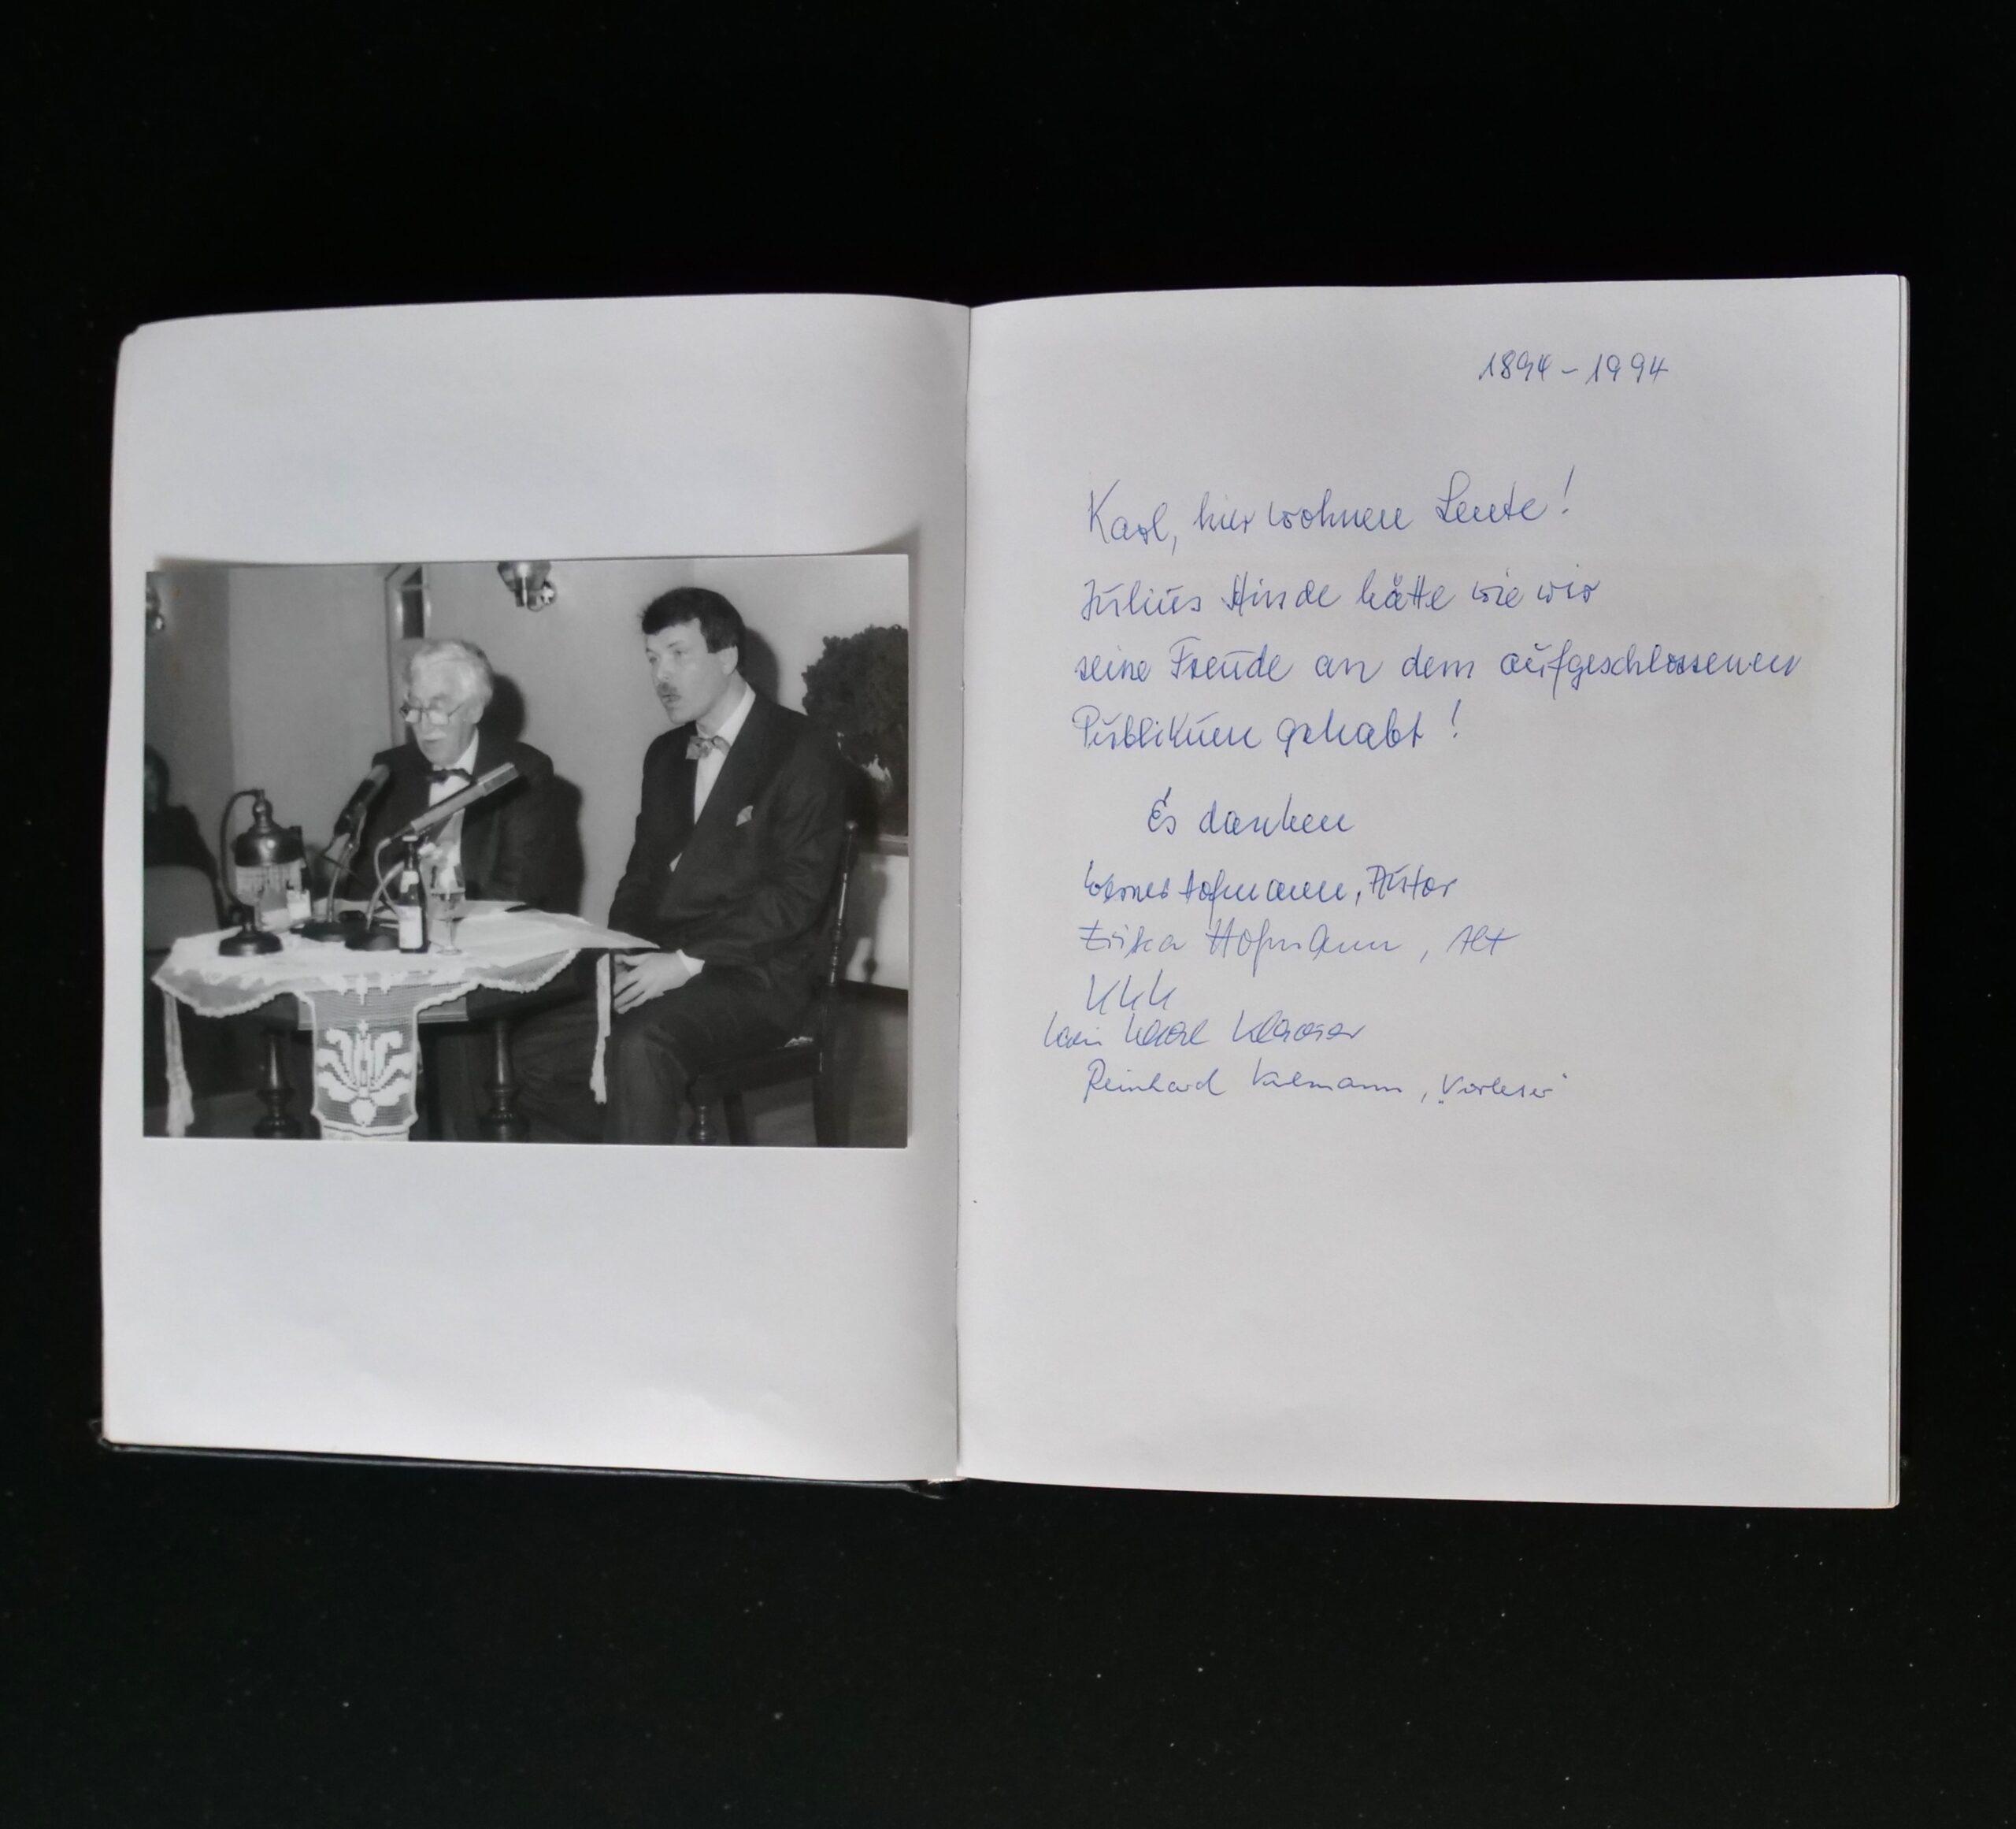 1894 - 1994
Karl, hier wohnen Leute!
Julius Stinde hätte wie wir
seine Freude an dem aufgeschlossenen
Publikum gehabt!
Es danken
Werner Hofmann, Autor
Erika Hofmann, Alt
KKK
Karl
Reinhard "Vorleser"